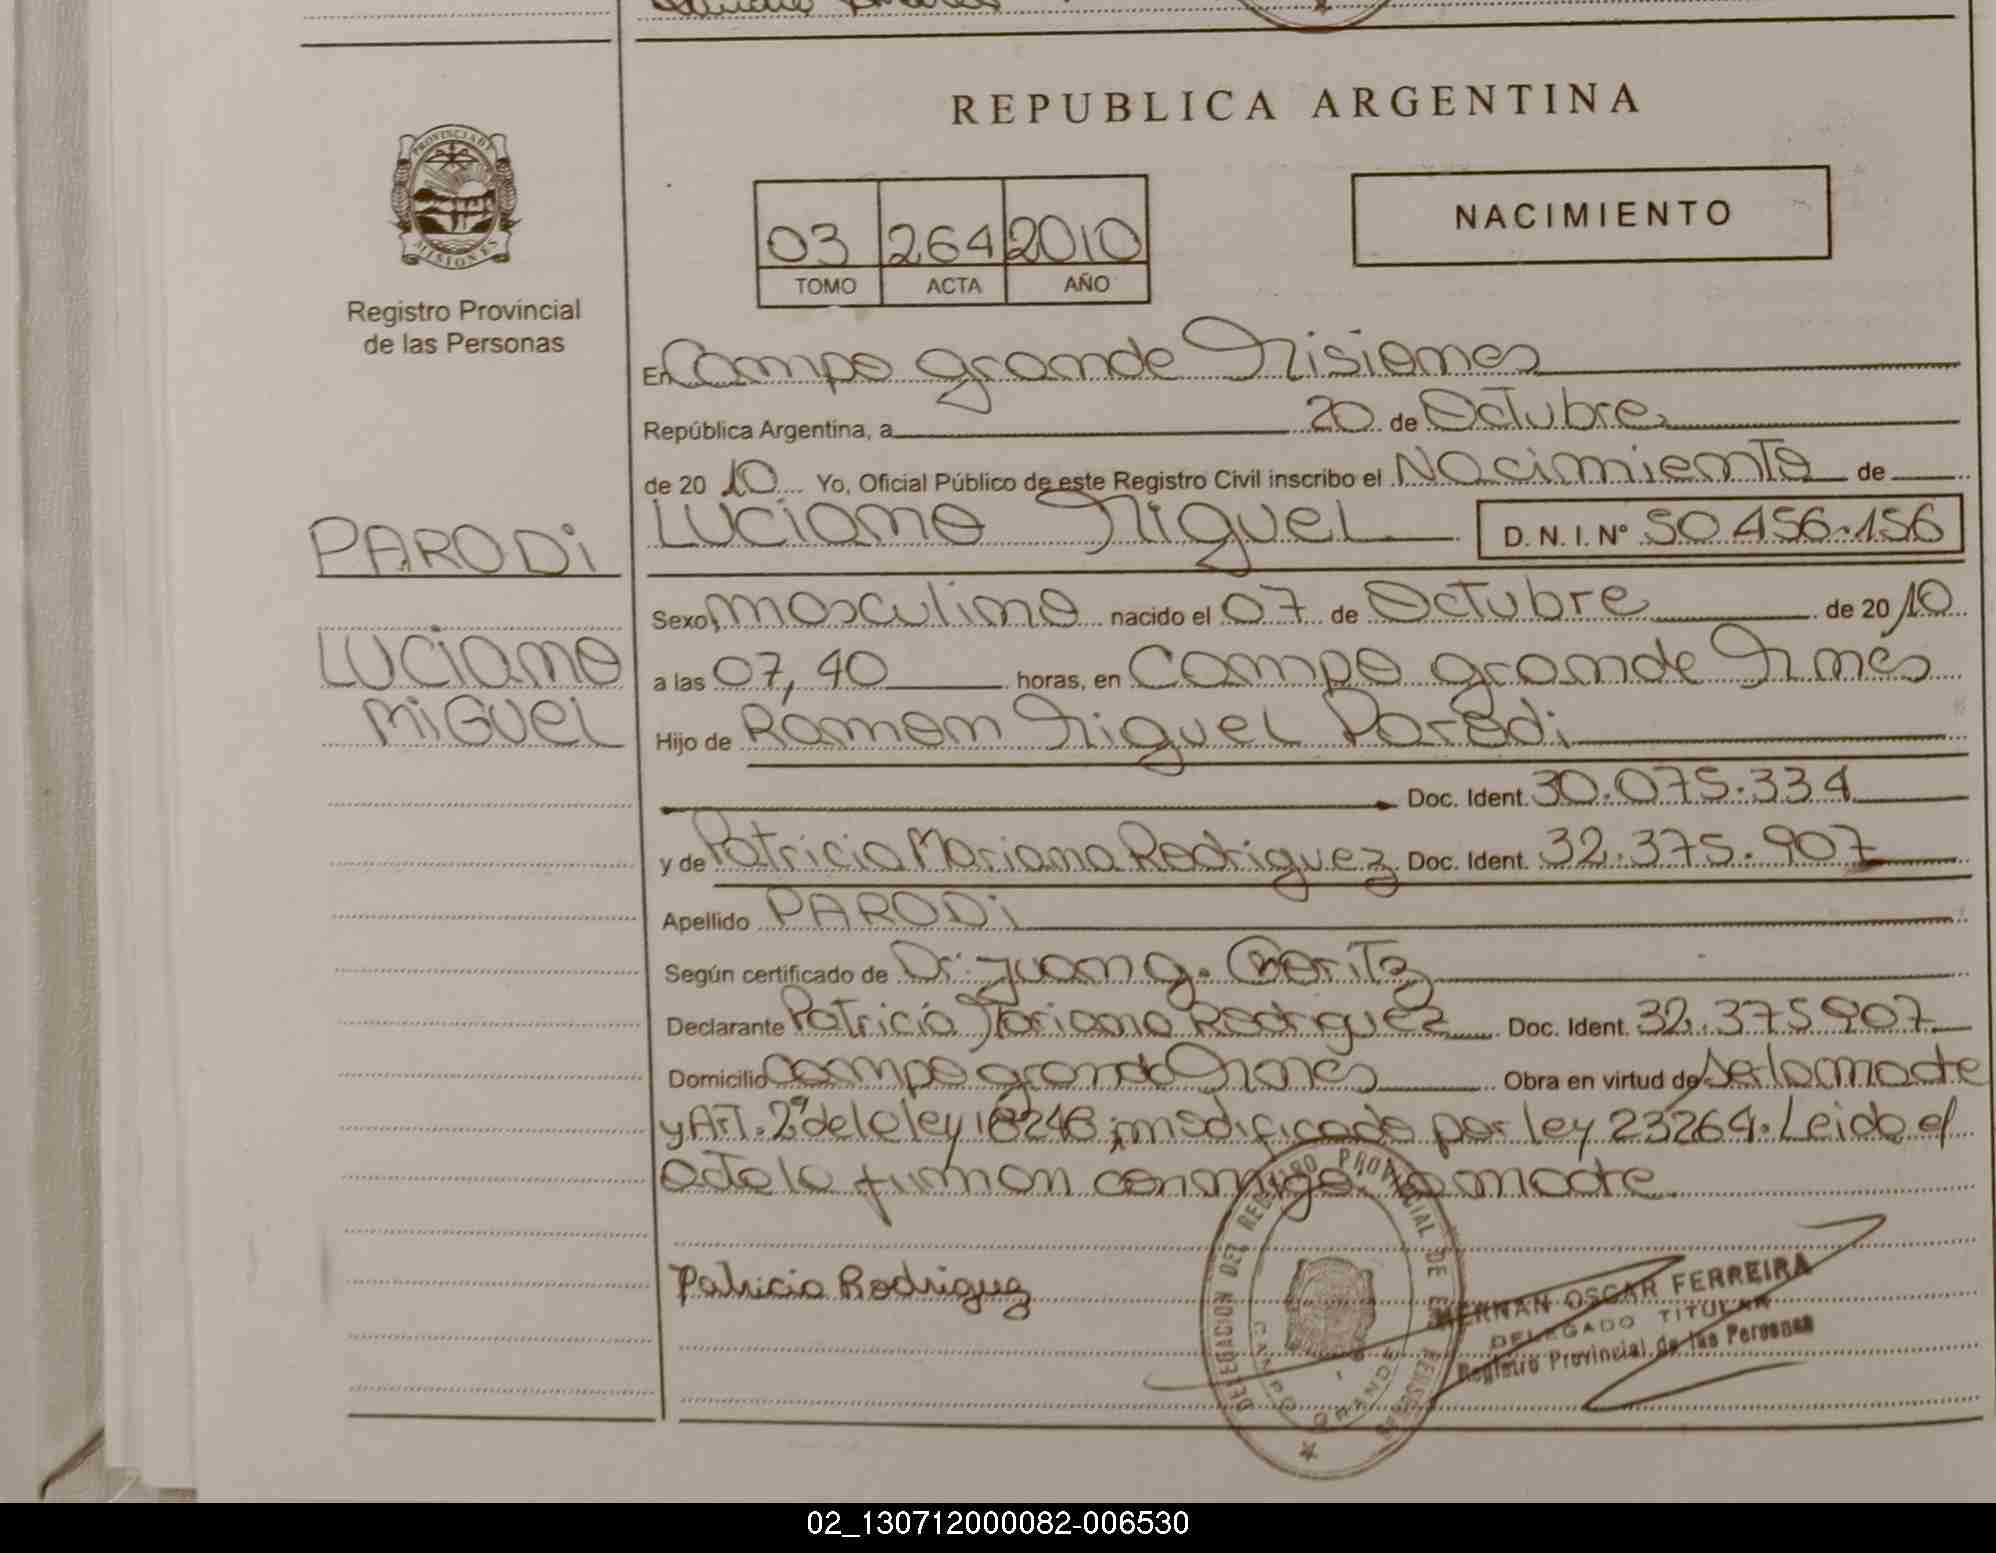 REPUBLICA ARGENTINA
PROVINCIA DE
MISIONES
Registro Provincial
de las Personas
NACIMIENTO
03 264 2010
TOMO ACTA AÑO
En Campo grande Misiones
República Argentina, a 20 de Octubre
de 20 10 Yo, Oficial Público de este Registro Civil inscribo el Nacimiento de
PARODi
LUCiano
MiGUEL
Luciano Miguel D. N. I. Nº 50 456.156
Sexo masculino nacido el 07 de Octubre de 20 10
a las 07,40 horas, en Campo grande Mnes
Hijo de Ramon Miguel Parodi
Doc. Ident. 30.075.334
y de Patricia Mariana Rodriguez Doc. Ident. 32.375.907
Apellido PARODi
Según certificado de Dr. Juan g.
Declarante Patricia Mariana Rodriguez Doc. Ident. 32.375907
Domicilio Campo grande Mnes Obra en virtud de ser la madre
y Art. 2º de la ley 18248 modificado por ley 23264. Leida el
acta la firman conmigo: la madre
Patricia Rodriguez
DELEGACION DEL REGISTRO PROVINCIAL DE LAS PERSONAS
CAMPO GRANDE
HERNAN OSCAR FERREIRA
DELEGADO TITULAR
Registro Provincial de las Personas
02_130712000082-006530